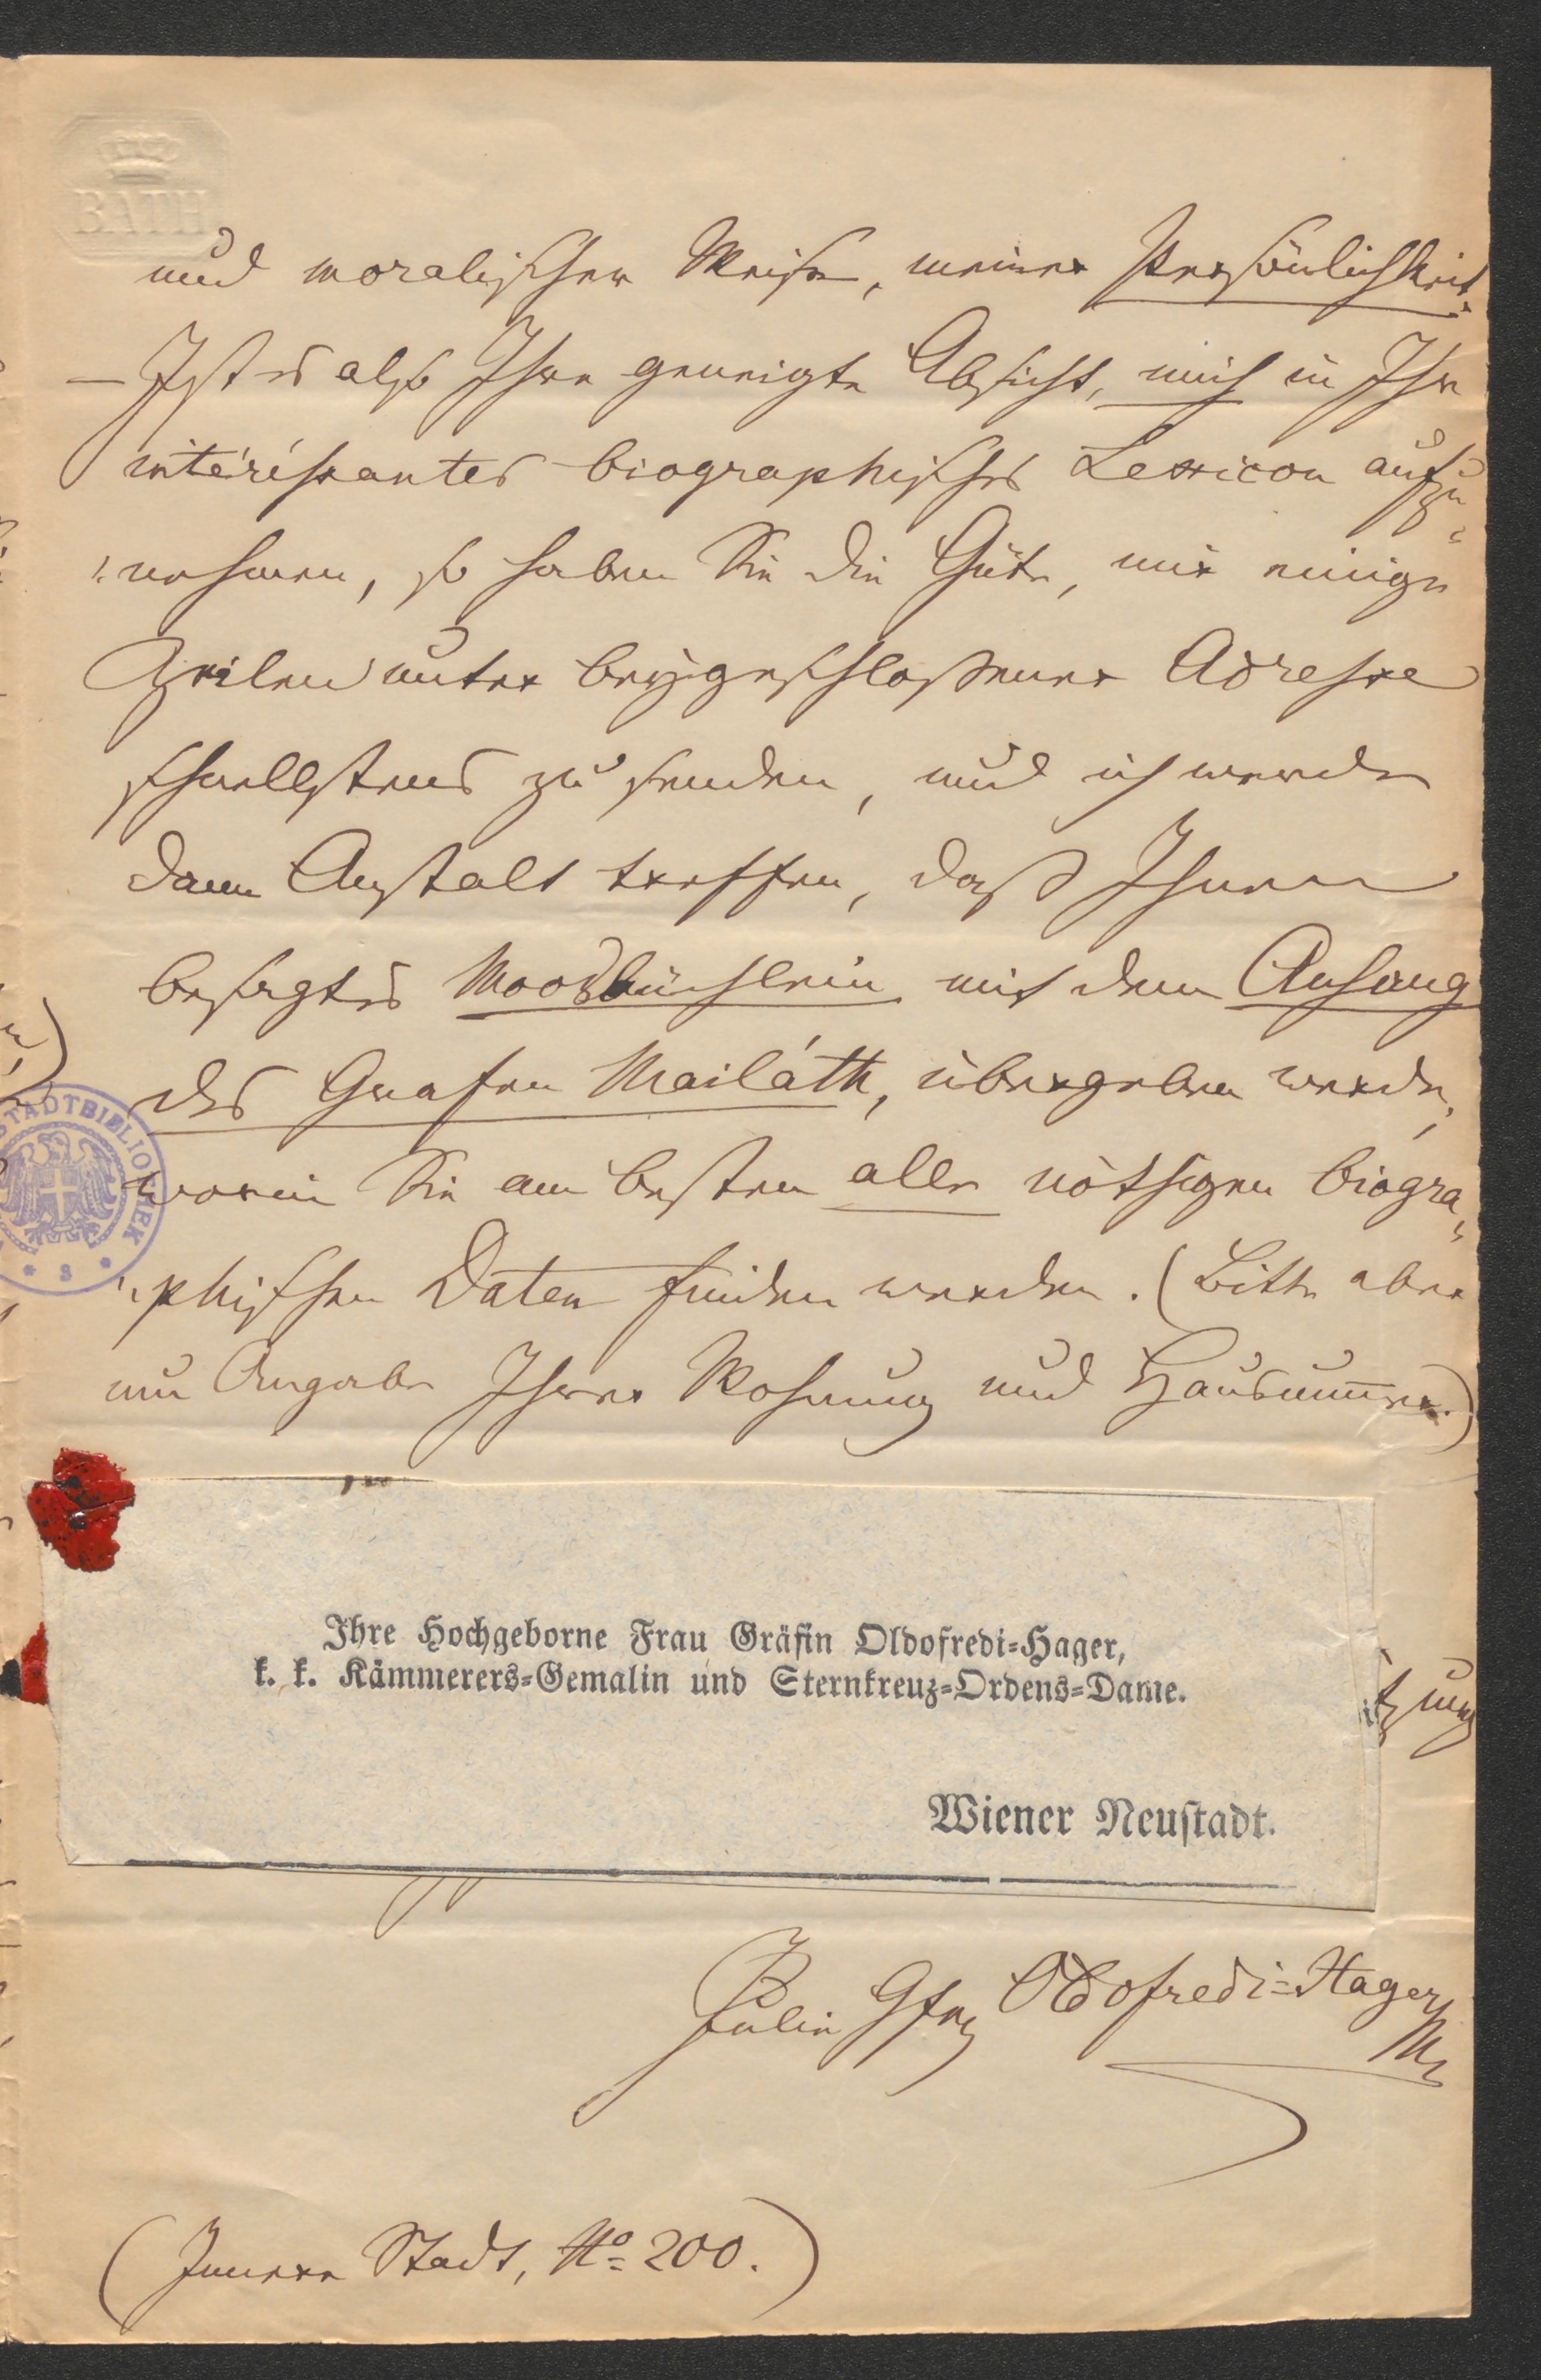 BATH
und moralischer Weise, meiner Persönlichkeit.
– Ist es also Ihre geneigte Absicht, mich in Ihr
intéressantes biographisches Lexicon aufzu-
nehmen, so haben Sie die Güte, mir einige
Zeilen unter beygeschloßener Adresse
schnellstens zu senden, und ich werde
dann Anstalt treffen, daß Ihnen
besagtes Moosbüchlein mit dem Anhang
des Grafen Mailáth, übergeben werde,
worin Sie am besten alle nöthigen biogra-
phischen Daten finden werden. (Bitte aber
um Angabe Ihrer Wohnung und Hausnum̄er.)
STADTBIBLIOTHEK
* S *
Ihre Hochgeborne Frau Gräfin Oldofredi-Hager,
k. k. Kämmerers-Gemalin und Sternkreuz-Ordens-Dame.
tzung
Wiener Neustadt.
Julie Gfin Oldofredi-Hager
(Innere Stadt, No 200.)